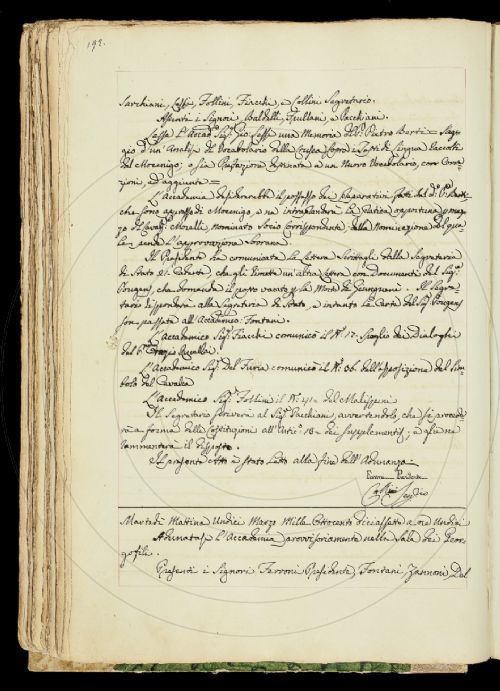 192.
Sarchiani, Lessi, Follini, Fiacchi, e Collini Segretario.
Assenti i Signori Baldelli, Giuliani, e Pacchiani.
Lesse L'Accad.o Sig.r Gio: Lessi una Memoria del S.r Pietro Berti = Sag-
gio d'un'Analisi del Vocabolario della Crusca sopra i Testi di Lingua raccolti
del Morenigo, o sia Prefazione destinata a un Nuovo Vocabolario, con Corre-
zioni, ed aggiunte =
L'Accademia desidererebbe il possesso dei Preparativi fatti dal d.o S.r Berti
che sono appresso di Morenigo, e ne intraprenderà la pratica opportuna p mez-
zo del Cavaj.r Morelli, nominato Socio Corrispondente, della Nominazione del qua-
le pende L'approvazione Sovrana.
Il Presidente ha comunicata La Lettera scrittagli dalla Segreteria
di Stato de' che gli rimette un'altra Lettera con Documenti del Sig.r
Pougens, che domanda il posto vacato p la Morte di Ginguené. Il Segre-
tario risponderà alla Segreteria di Stato, e intanto Le Carte del Sig.r Pougens
son passate all'Accademico Fontani.
L'Accademico Sig.r Fiacchi comunicò il N.o 17. Spoglio dei Dialoghi
del S.r Orazio Rucellai.
L'Accademico Sig.r Del Furia comunicò il N.o 36. dell'Esposizione del Sim-
bolo del Cavalca
L'Accademico Sig.r Follini il N.o 41 del Malispini
Il Segretario scriverà al Sig.r Pacchiani, avvertendolo, che si procede-
rà a forma delle Costituzioni all'Artic.o 18 dei Supplementi, e glie ne
rammenterà il disposto.
Il presente Atto è stato Letto alla fine dell'Adunanza
Ferroni Presidente
Collini Seg.rio
Martedì Mattina Undici Marzo Mille Ottocento diciassette a ore Undici
Adunatasi L'Accademia provvisoriamente nella Sala dei Geor-
gofili.
Presenti i Signori Ferroni Presidente, Fontani, Zannoni, Del